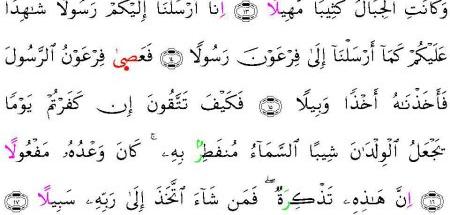 وَكَانَتِ الْجِبَالُ كَثِيبًا مَّهِيلًا ۝١٤ إِنَّا أَرْسَلْنَا إِلَيْكُمْ رَسُولًا شَٰهِدًا
عَلَيْكُمْ كَمَا أَرْسَلْنَا إِلَىٰ فِرْعَوْنَ رَسُولًا ۝١٥ فَعَصَىٰ فِرْعَوْنُ الرَّسُولَ
فَأَخَذْنَٰهُ أَخْذًا وَبِيلًا ۝١٦ فَكَيْفَ تَتَّقُونَ إِن كَفَرْتُمْ يَوْمًا
يَجْعَلُ الْوِلْدَٰنَ شِيبًا السَّمَاءُ مُنفَطِرٌ بِهِۦ ۚ كَانَ وَعْدُهُۥ مَفْعُولًا
۝ إِنَّ هَٰذِهِۦ تَذْكِرَةٌ ۖ فَمَن شَاءَ اتَّخَذَ إِلَىٰ رَبِّهِۦ سَبِيلًا ۝